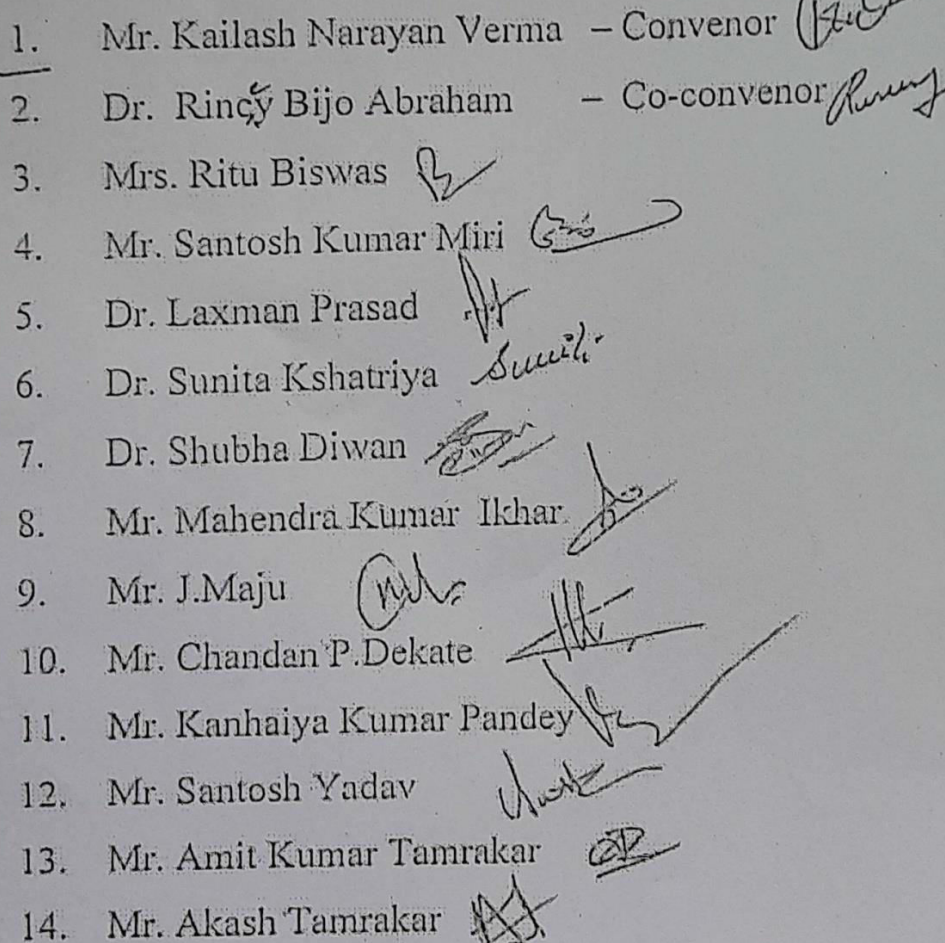 1. Mr. Kailash Narayan Verma – Convenor
2. Dr. Rincy Bijo Abraham – Co-convenor
3. Mrs. Ritu Biswas
4. Mr. Santosh Kumar Miri
5. Dr. Laxman Prasad
6. Dr. Sunita Kshatriya
7. Dr. Shubha Diwan
8. Mr. Mahendra Kumar Ikhar
9. Mr. J.Maju
10. Mr. Chandan P.Dekate
11. Mr. Kanhaiya Kumar Pandey
12. Mr. Santosh Yadav
13. Mr. Amit Kumar Tamrakar
14. Mr. Akash Tamrakar